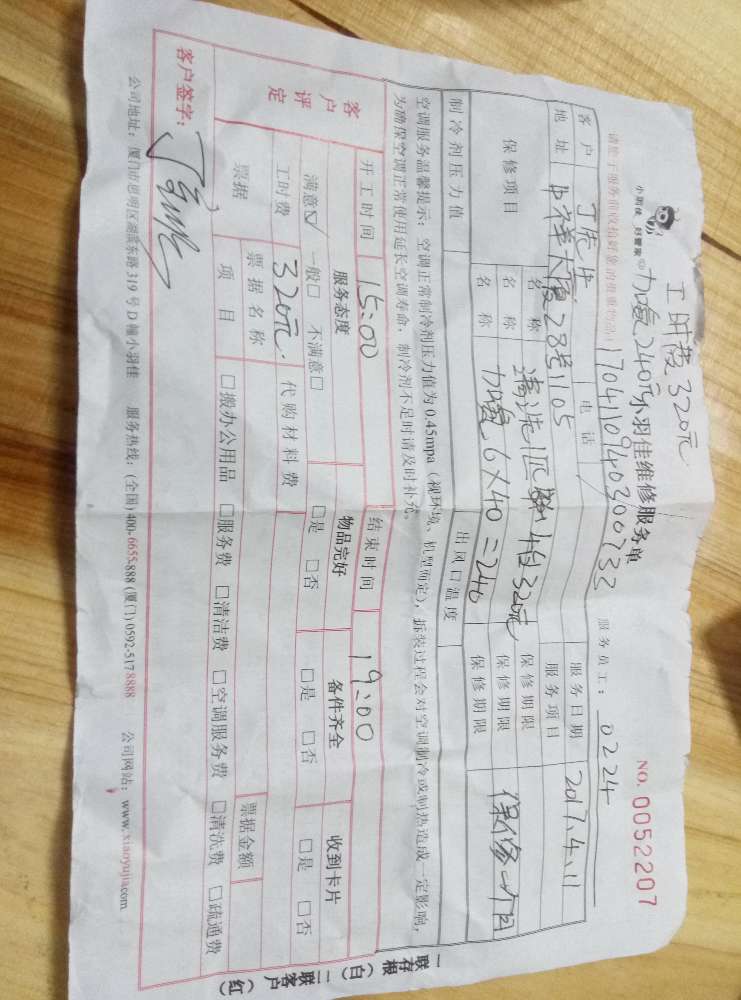 工时费320元
加氨240元
小羽佳维修服务单
NO. 0052207
小羽佳 好管家
服务员工: 0224
1704110940300733
客户 丁先生 电话 服务日期 2017.4.11
地址 中祥大厦28号1105 服务项目
保修项目 名称 清洗1匹 4台320元 保修期限
名称 保修期限
名称 加氨6×40=240 保修期限 保修一个月
制冷剂压力值 出风口温度
空调服务温馨提示: 空调正常制冷剂压力值为0.45mpa(视环境、机型而定), 拆装过程会对空调制冷或制热造成一定影响,
为确保空调正常使用延长空调寿命, 制冷剂不足时请及时补充。
开工时间 15:00 结束时间 19:00
客户评定 服务态度 物品完好 备件齐全 收到卡片
满意☑ 一般□ 不满意□ □是 □否 □是 □否 □是 □否
工时费 320元. 代购材料费
票据 票据名称 票据金额
项目 □搬办公用品 □服务费 □清洁费 □空调服务费 □清洗费 □疏通费
客户签字:
公司地址: 厦门市思明区湖滨东路319号D幢小羽佳 服务热线: (全国)400-6655-888 (厦门)0592-5178888 公司网站: www.xiaoyujia.com
一联存根(白) 二联客户(红)